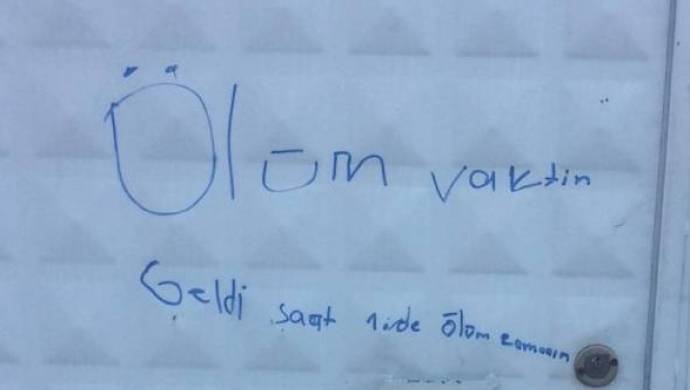 Ölüm vaktin
Geldi saat 1 i de ölüm zamanın